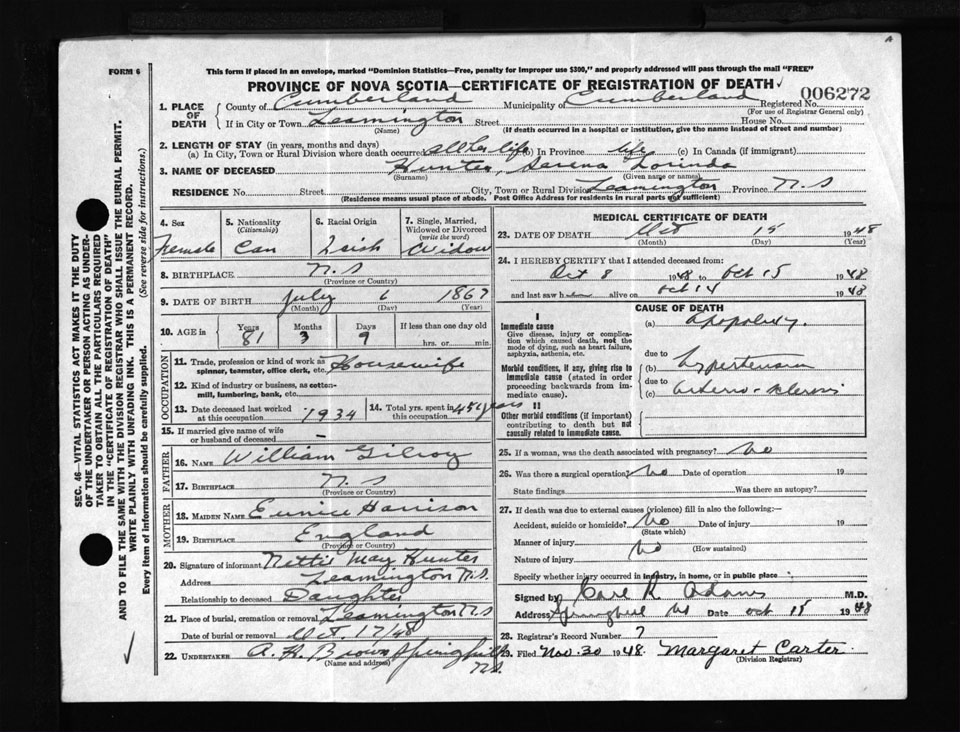 FORM 6
This form if placed in an envelope, marked "Dominion Statistics—Free, penalty for improper use $300," and properly addressed will pass through the mail "FREE"
PROVINCE OF NOVA SCOTIA—CERTIFICATE OF REGISTRATION OF DEATH
006272
1. PLACE OF DEATH County of Cumberland Municipality of Cumberland Registered No.
(For use of Registrar General only)
If in City or Town Leamington Street House No.
(Name) (If death occurred in a hospital or institution, give the name instead of street and number)
2. LENGTH OF STAY (in years, months and days)
(a) In City, Town or Rural Division where death occurred all her life (b) In Province life (c) In Canada (if immigrant)
3. NAME OF DECEASED Hunter, Serena Lorinda
(Surname) (Given name or names)
RESIDENCE No. Street City, Town or Rural Division Leamington Province N.S
(Residence means usual place of abode. Post Office Address for residents in rural parts not sufficient)
4. Sex Female
5. Nationality (Citizenship) Can
6. Racial Origin Irish
7. Single, Married, Widowed or Divorced (write the word) Widow
8. BIRTHPLACE N.S
(Province or Country)
9. DATE OF BIRTH July 6 1867
(Month) (Day) (Year)
10. AGE in Years 81 Months 3 Days 9 If less than one day old hrs. or min.
OCCUPATION
11. Trade, profession or kind of work as spinner, teamster, office clerk, etc. Housewife
12. Kind of industry or business, as cotton-mill, lumbering, bank, etc.
13. Date deceased last worked at this occupation 1934
14. Total yrs. spent in this occupation 45 years
15. If married give name of wife or husband of deceased –
FATHER
16. NAME William Gilroy
17. BIRTHPLACE N.S
(Province or Country)
MOTHER
18. MAIDEN NAME Eunice Harrison
19. BIRTHPLACE England
(Province or Country)
20. Signature of informant Nettie May Hunter
Address Leamington N.S.
Relationship to deceased Daughter
21. Place of burial, cremation or removal Leamington N.S
Date of burial or removal Oct. 17/48
22. UNDERTAKER A. H. Brown Springhill N.S.
(Name and address)
MEDICAL CERTIFICATE OF DEATH
23. DATE OF DEATH Oct 15 1948
(Month) (Day) (Year)
24. I HEREBY CERTIFY that I attended deceased from:
Oct 8 1948 to Oct 15 1948
and last saw h alive on Oct 14 1948
CAUSE OF DEATH
I
Immediate cause
Give disease, injury or complication which caused death, not the mode of dying, such as heart failure, asphyxia, asthenia, etc.
(a) apoplexy.
due to
Morbid conditions, if any, giving rise to immediate cause (stated in order proceeding backwards from immediate cause).
(b) Hypertension
due to
(c) arterio-sclerosis
II
Other morbid conditions (if important) contributing to death but not causally related to immediate cause.
25. If a woman, was the death associated with pregnancy? No
26. Was there a surgical operation? No Date of operation 19
State findings Was there an autopsy?
27. If death was due to external causes (violence) fill in also the following:—
Accident, suicide or homicide? No Date of injury 19
(State which)
Manner of injury No
(How sustained)
Nature of injury
Specify whether injury occurred in industry, in home, or in public place
Signed by Carl K Adams M.D.
Address Springhill NS Date Oct 15 1948
28. Registrar's Record Number 7
29. Filed Nov. 30 1948. Margaret Carter
(Division Registrar)
SEC. 46—VITAL STATISTICS ACT MAKES IT THE DUTY
OF THE UNDERTAKER OR PERSON ACTING AS UNDER-
TAKER TO OBTAIN ALL THE PARTICULARS REQUIRED
IN THE "CERTIFICATE OF REGISTRATION OF DEATH"
AND TO FILE THE SAME WITH THE DIVISION REGISTRAR WHO SHALL ISSUE THE BURIAL PERMIT.
WRITE PLAINLY WITH UNFADING INK. THIS IS A PERMANENT RECORD.
Every item of information should be carefully supplied. (See reverse side for instructions.)